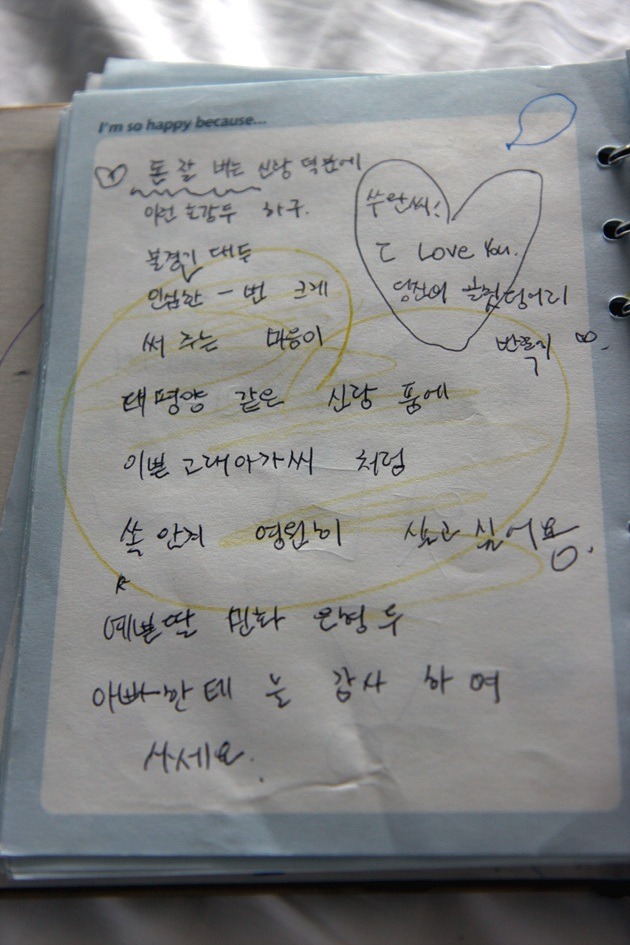 I'm so happy because...
돈 잘 버는 신랑 덕분에
이런 호강두 하구.
불경기 대두
한 번 크게
써 주는 마음이
태평양 같은 신랑 품에
이쁜 고대아가씨 처럼
쏙 안겨 영원히 살고싶어요.
예쁜딸 민화 은영두
아빠한테 늘 감사 하며
사세요.
I Love You.
당신의 덩어리